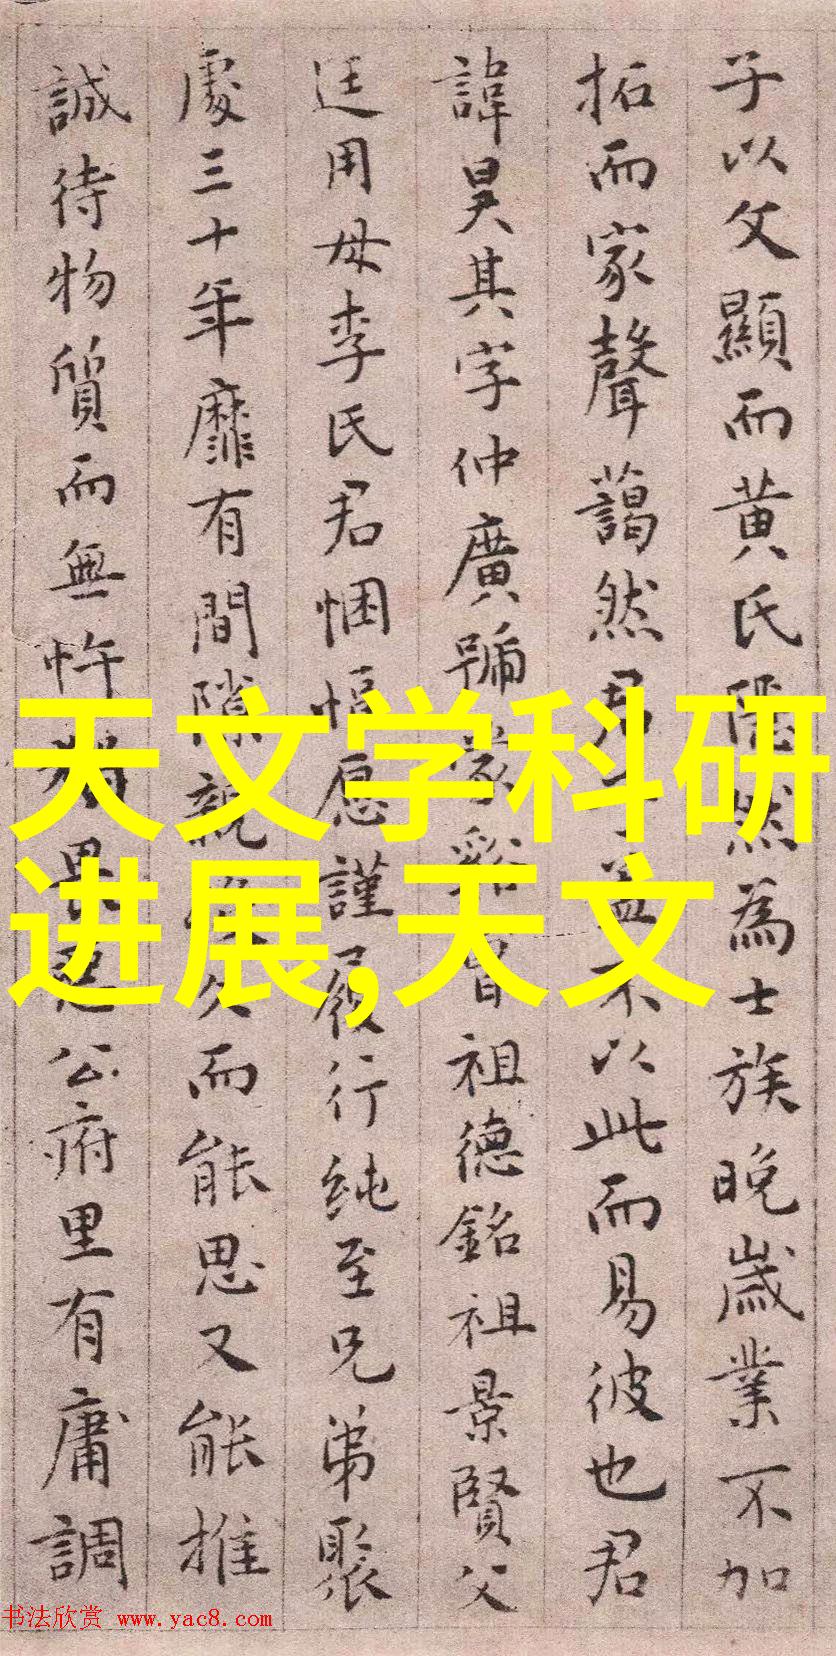 子以父顯而黄氏隱然為士族晚歲業不加
拓而家聲藹然君子盖不以此而易彼也君
諱昊其字仲廣號蒙谿曾祖德銘祖景賢父
廷用母李氏君悃愊愿謹履行純至兄弟聚
處三十年靡有間隙親久而能思又能推
誠待物質而無忤猶畏忍公府里有庸調
天文学科研
进展,天文
书法欣赏 www.yac8.com